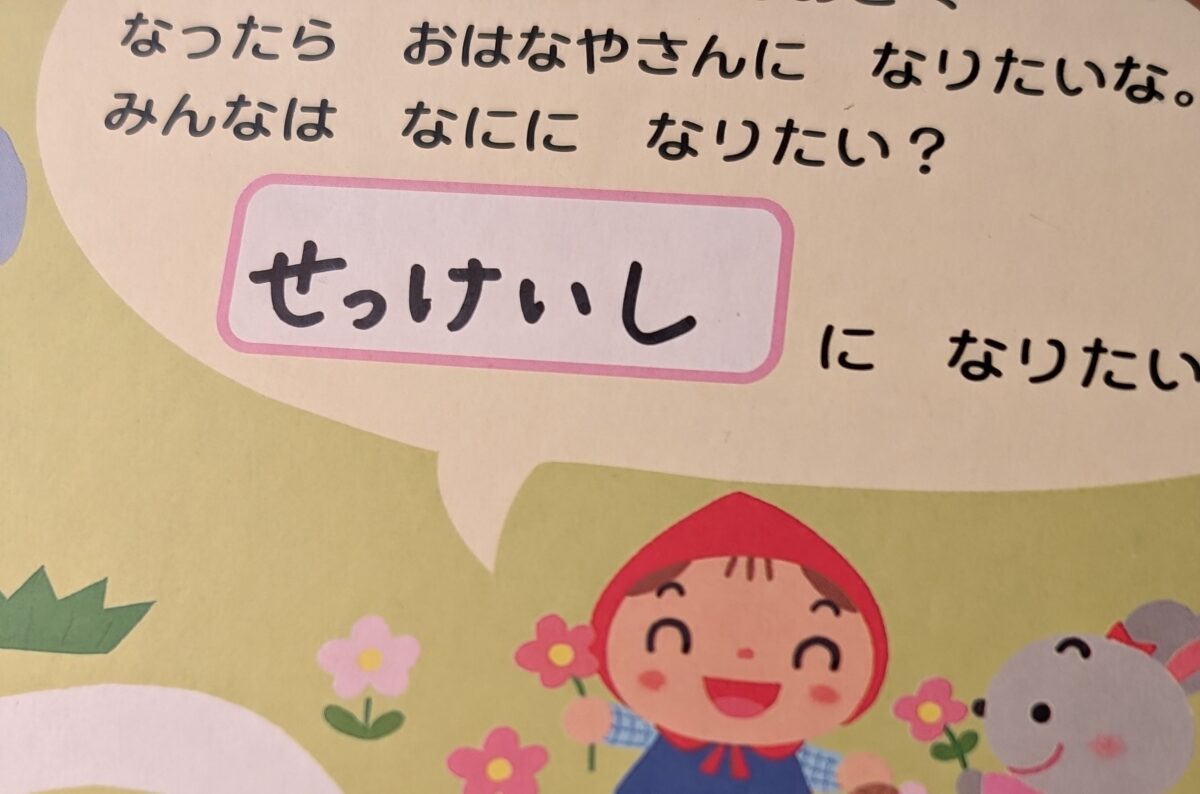 なったら おはなやさんに なりたいな。
みんなは なにに なりたい？
せっけいし に なりたい